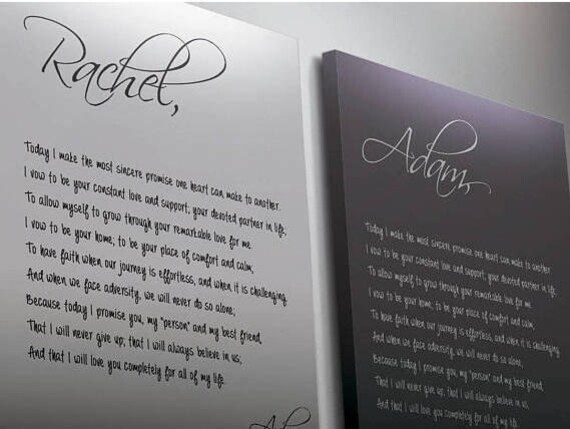 Rachel,
Today I make the most sincere promise one heart can make to another.
I vow to be your constant love and support, your devoted partner in life,
To allow myself to grow through your remarkable love for me.
I vow to be your home; to be your place of comfort and calm,
To have faith when our journey is effortless, and when it is challenging.
And when we face adversity, we will never do so alone,
Because today I promise you, my "person" and my best friend,
That I will never give up; that I will always believe in us;
And that I will love you completely for all of my life.
Adam,
Today I make the most sincere promise one heart can make to another.
I vow to be your constant love and support, your devoted partner in life.
To allow myself to grow through your remarkable love for me.
I vow to be your home; to be your place of comfort and calm,
To have faith when our journey is effortless, and when it is challenging.
And when we face adversity, we will never do so alone,
Because today I promise you, my "person" and my best friend,
That I will never give up; that I will always believe in us,
And that I will love you completely for all of my life.